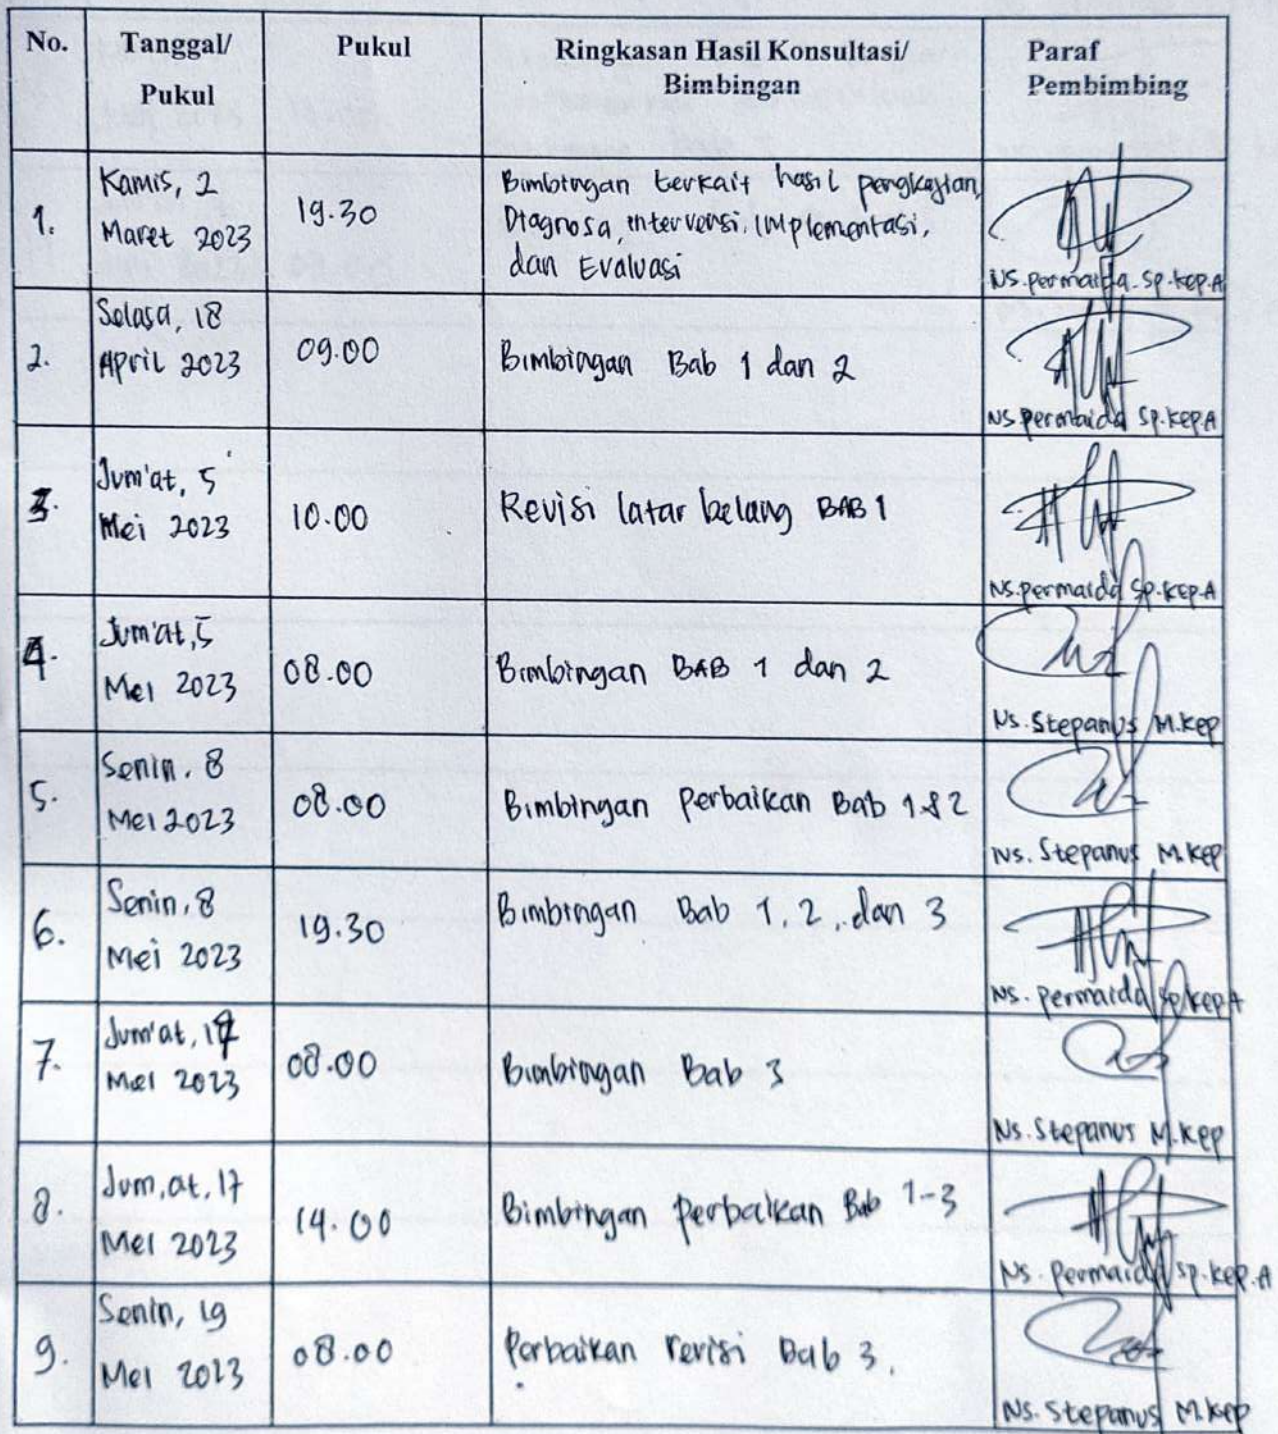 No.
Tanggal/
Pukul
Pukul
Ringkasan Hasil Konsultasi/
Bimbingan
Paraf
Pembimbing
1.
Kamis, 2
Maret 2023
19.30
Bimbingan terkait hasil pengkajian,
Diagnosa, intervensi, Implementasi,
dan Evaluasi
Ns. permaida. Sp.Kep.A
2.
Selasa, 18
April 2023
09.00
Bimbingan Bab 1 dan 2
Ns. Permaida Sp.Kep.A
3.
Jum'at, 5
Mei 2023
10.00
Revisi latar belang BAB 1
Ns. permaida Sp.Kep.A
4.
Jum'at, 5
Mei 2023
08.00
Bimbingan BAB 1 dan 2
Ns. Stepanus M.Kep
5.
Senin, 8
Mei 2023
08.00
Bimbingan Perbaikan Bab 1 & 2
Ns. Stepanus M.Kep
6.
Senin, 8
Mei 2023
19.30
Bimbingan Bab 1, 2, dan 3
Ns. Permaida Sp.Kep.A
7.
Jum'at,
Mei 2023
08.00
Bimbingan Bab 3
Ns. Stepanus M.Kep
8.
Jum,at, 17
Mei 2023
14.00
Bimbingan Perbaikan Bab 1-3
Ns. Permaida Sp.Kep.A
9.
Senin, 19
Mei 2023
08.00
Perbaikan revisi Bab 3.
Ns. Stepanus M.Kep